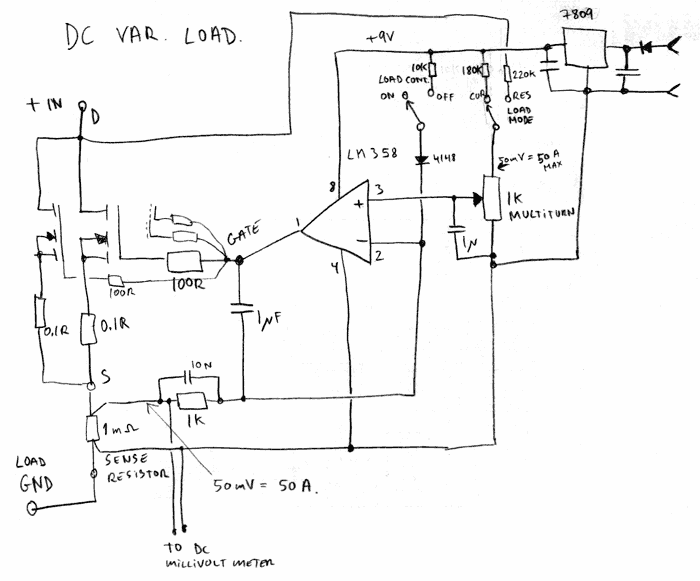 DC VAR. LOAD.
7809
+9V
10K
180K
220K
LOAD CONT.
ON
OFF
CUR
RES
LOAD
MODE
+ IN
D
LM358
4148
50mV = 50A
MAX
8
3
+
1K
MULTITURN
1
GATE
-
2
1N
4
100R
100R
0.1R
0.1R
1µF
S
10N
1K
1mΩ
SENSE
RESISTOR
LOAD
GND
50mV = 50A.
TO DC
MILLIVOLT METER